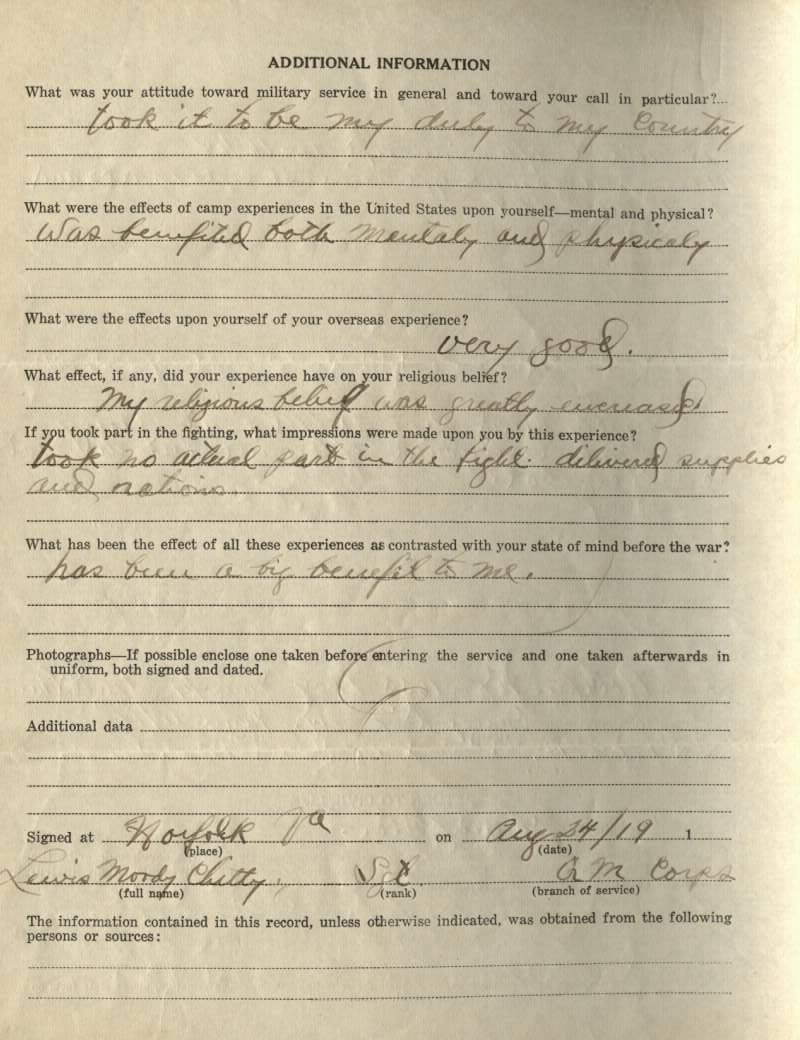 ADDITIONAL INFORMATION
What was your attitude toward military service in general and toward your call in particular?...
took it to be my duty to my Country
What were the effects of camp experiences in the United States upon yourself—mental and physical?
Was benefited both mentaly and physicaly
What were the effects upon yourself of your overseas experience?
very good.
What effect, if any, did your experience have on your religious belief?
My religious belief was greatly encreased
If you took part in the fighting, what impressions were made upon you by this experience?
took no actual part in the fight. delivered supplies
and rations
What has been the effect of all these experiences as contrasted with your state of mind before the war?
has been a big benefit to me.
Photographs—If possible enclose one taken before entering the service and one taken afterwards in
uniform, both signed and dated.
Additional data
Signed at Norfolk Va on Aug 24/19 1
(place) (date)
Lewis Moody Chitty, Sgt Q M Corps
(full name) (rank) (branch of service)
The information contained in this record, unless otherwise indicated, was obtained from the following
persons or sources: